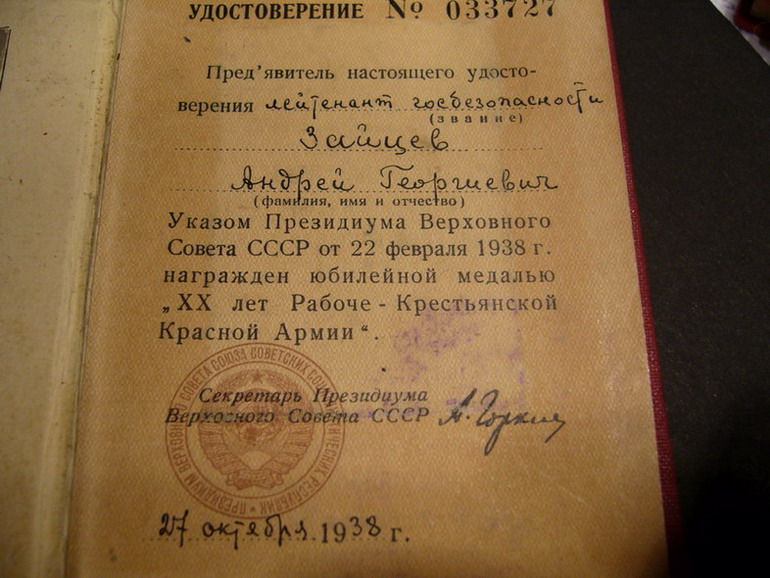 УДОСТОВЕРЕНИЕ № 033727
Пред'явитель настоящего удосто-
верения лейтенант госбезопасности
(звание)
Зайцев
Андрей Георгиевич
(фамилия, имя и отчество)
Указом Президиума Верховного
Совета СССР от 22 февраля 1938 г.
награжден юбилейной медалью
„XX лет Рабоче - Крестьянской
Красной Армии“.
Секретарь Президиума
Верховного Совета СССР А. Горкин
ПРЕЗИДИУМ ВЕРХОВНОГО СОВЕТА СОЮЗА СОВЕТСКИХ СОЦИАЛИСТИЧЕСКИХ РЕСПУБЛИК
27 октября 1938 г.